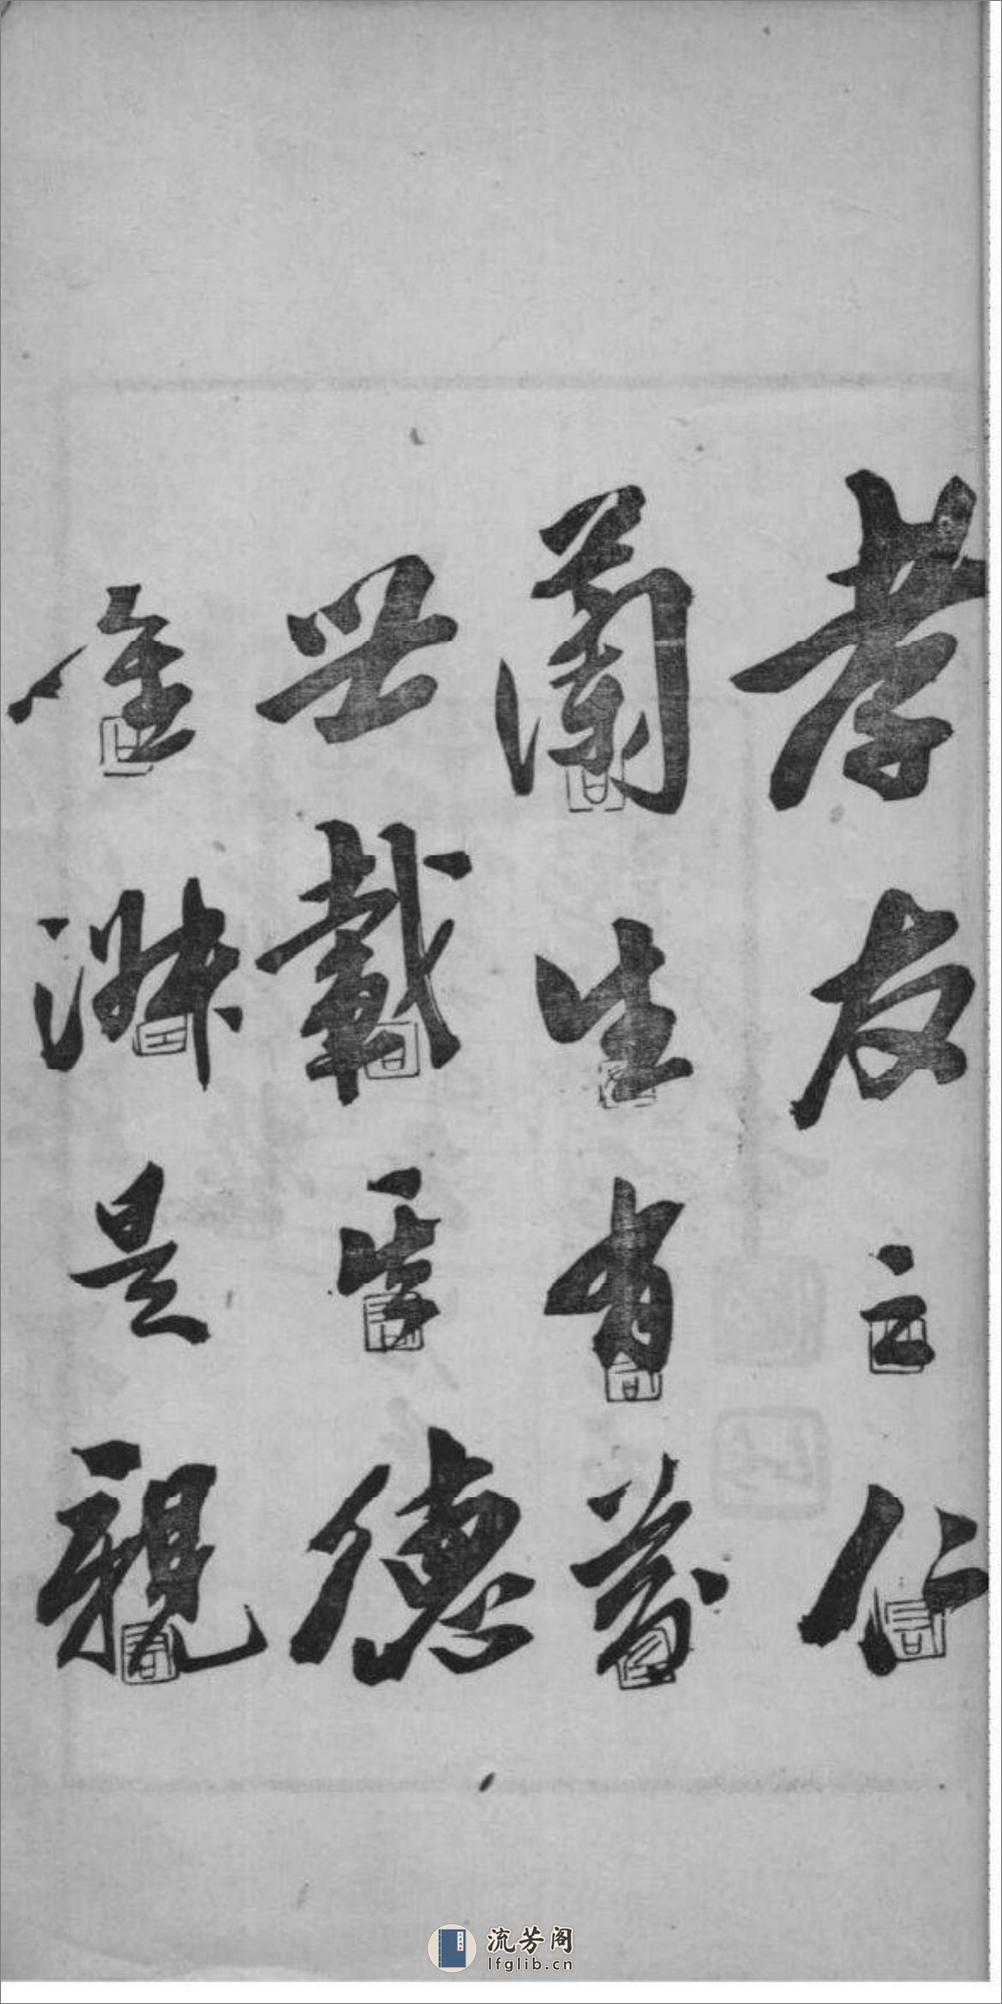 孝友之仁
蘭生有芬
世載其德
金淋是親
流芳阁
lfglib.cn